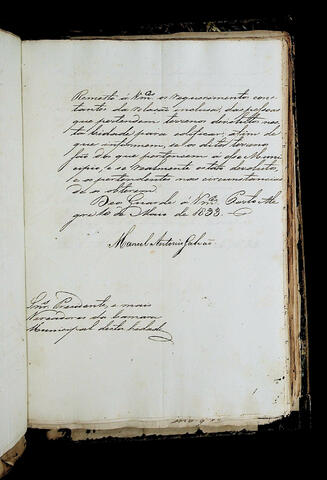 Remeto á Vm.ces os requerimentos cons-
tantes da relação incluza, das pessoas
que pertendem terrenos devolutos nes-
ta Cidade para edificar, afim de
que informem, se os ditos terre-
fos são dos que pertencem a esse Muni-
cipio, e se realmente estão devolutos,
e se os pertendentes nas circunstancias
de os obterem
Deos Guarde á Vm.ces Porto Ale-
gre 10 de Maio de 1833.
Manoel Antonio Galvão
Snr.es Presidente, e mais
Vereadores da Camara
Municipal desta Cidade